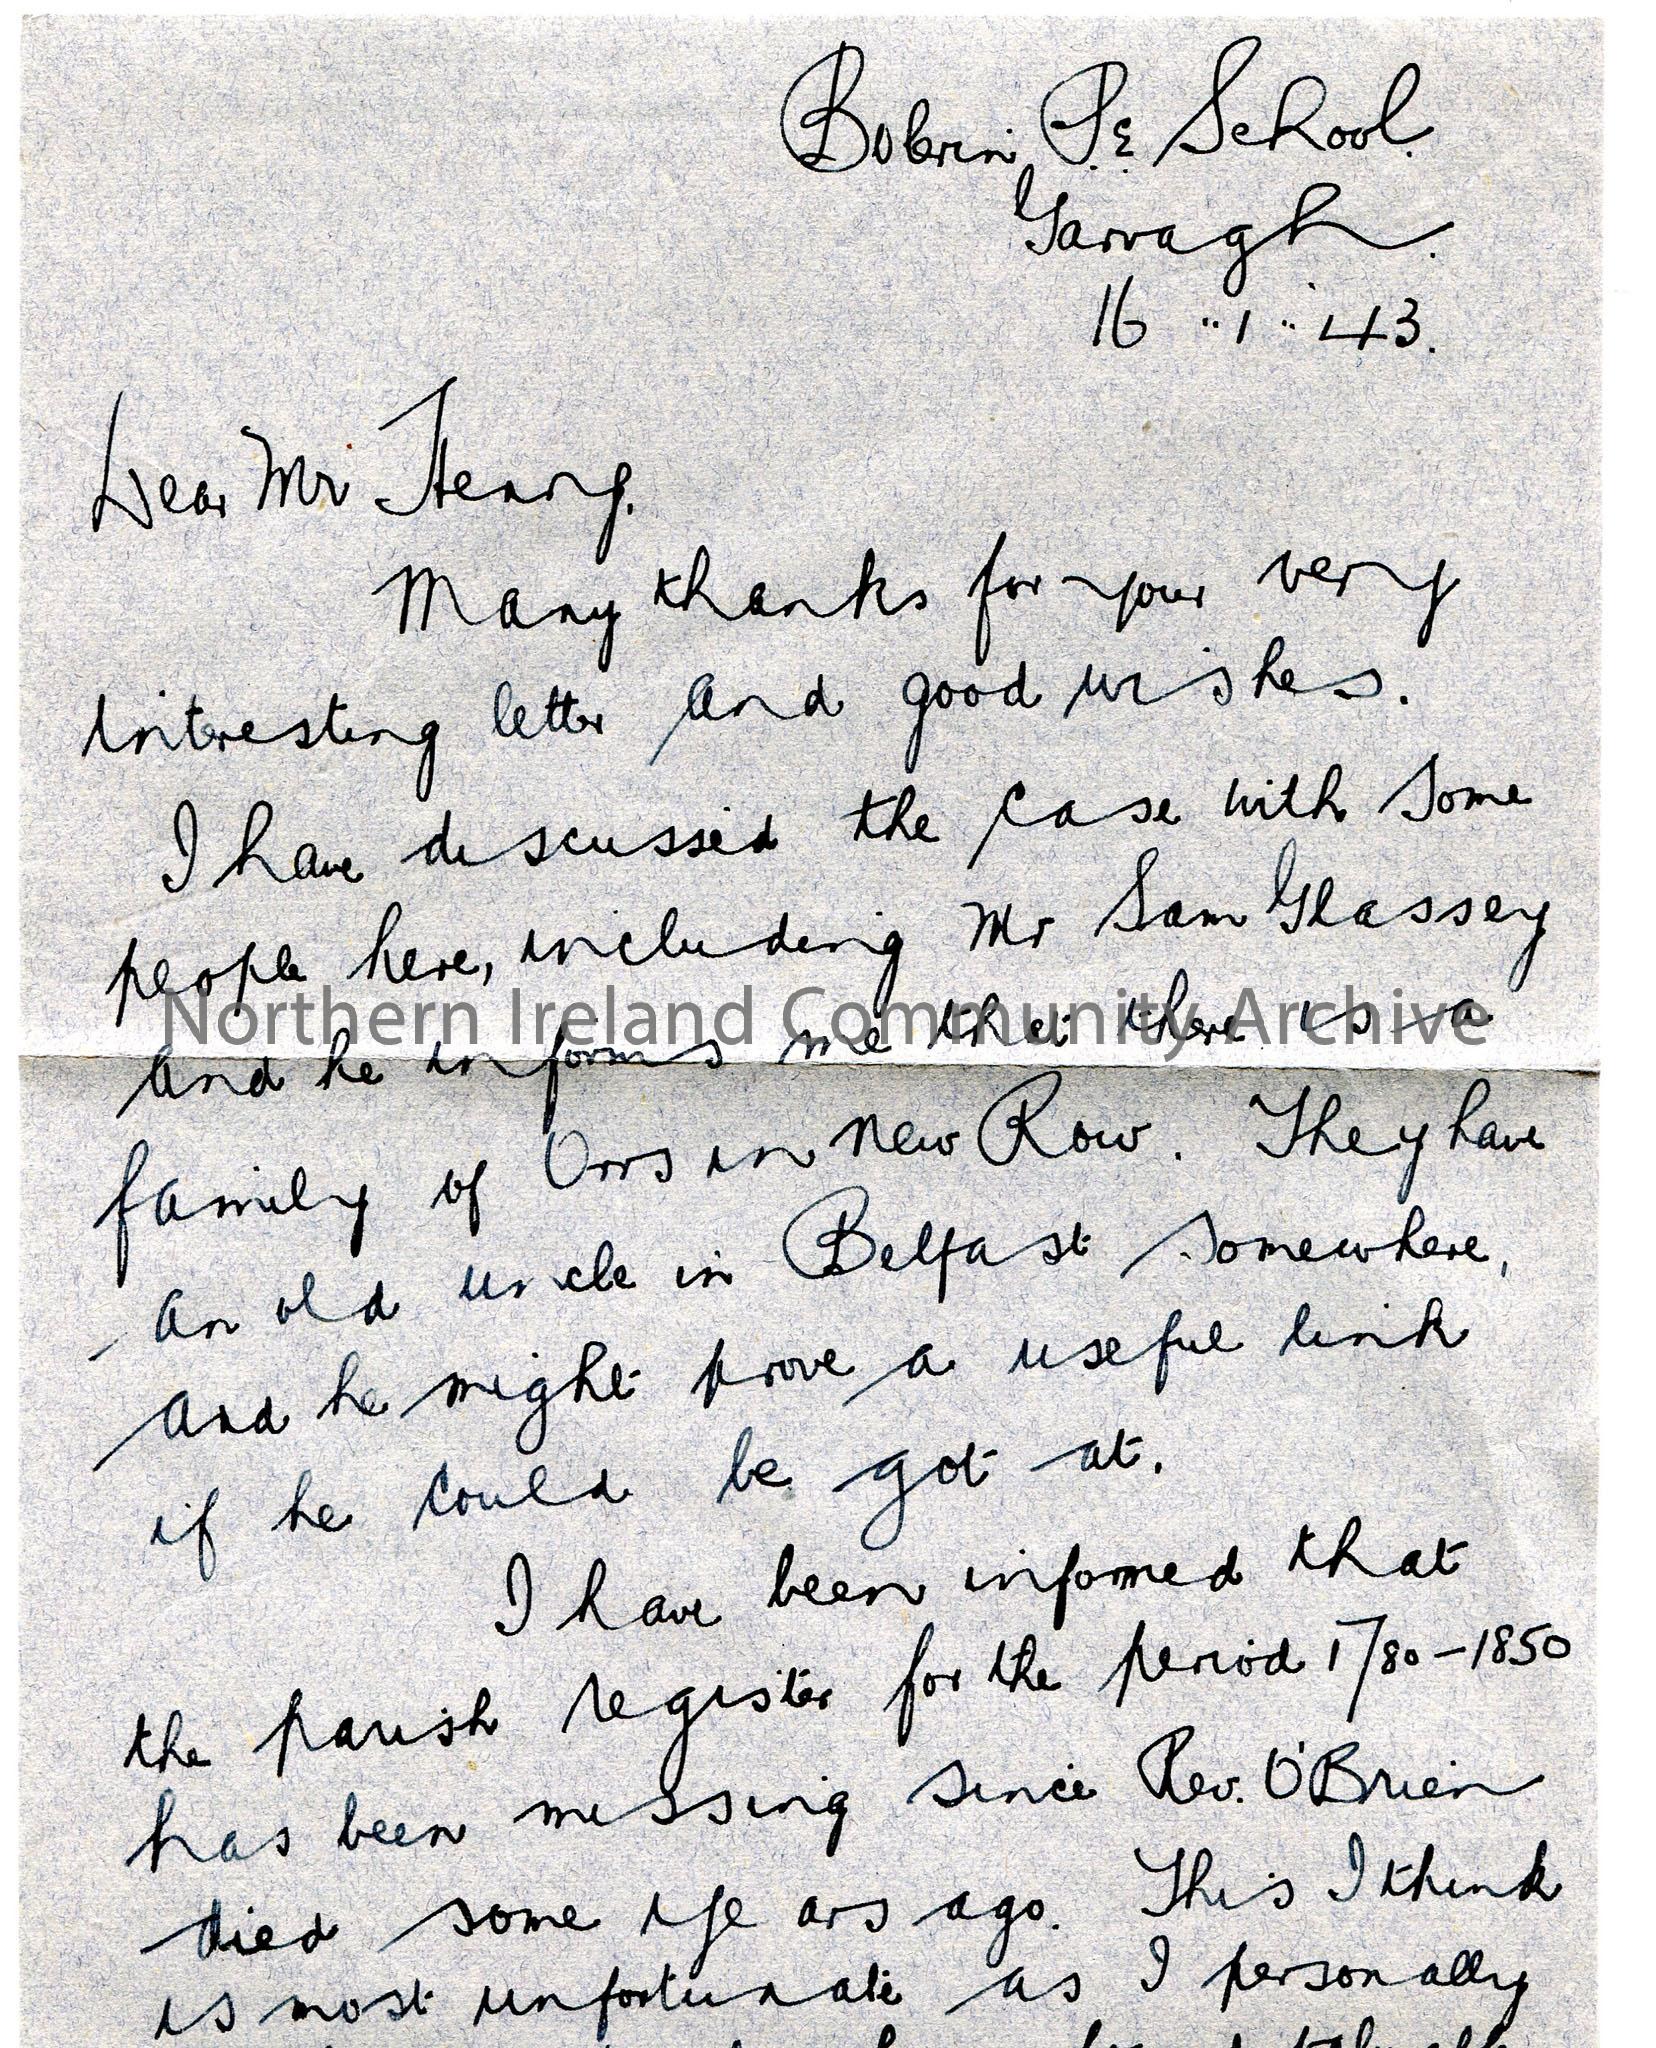 Bobrin P.E School.
Garvagh.
16 "1" 43.
Dear Mr Henry,
Many thanks for your very
interesting letter and good wishes.
I have discussed the case with some
people here, including Mr Sam Glassey
Northern Ireland Community Archive
and he informs me that there is a
family of Orrs in New Row. They have
an old uncle in Belfast somewhere,
and he might prove a useful link
if he could be got at.
I have been informed that
the parish register for the period 1780-1850
has been missing since Rev. O'Brien
died some years ago. This I think
is most unfortunate as I personally